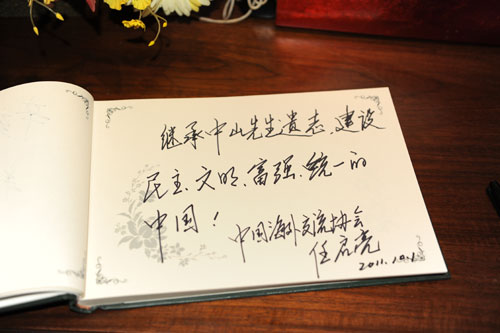 继承中山先生遗志、建设
民主、文明、富强、统一的
中国！
中国海外交流协会
任启亮
2011.10.1